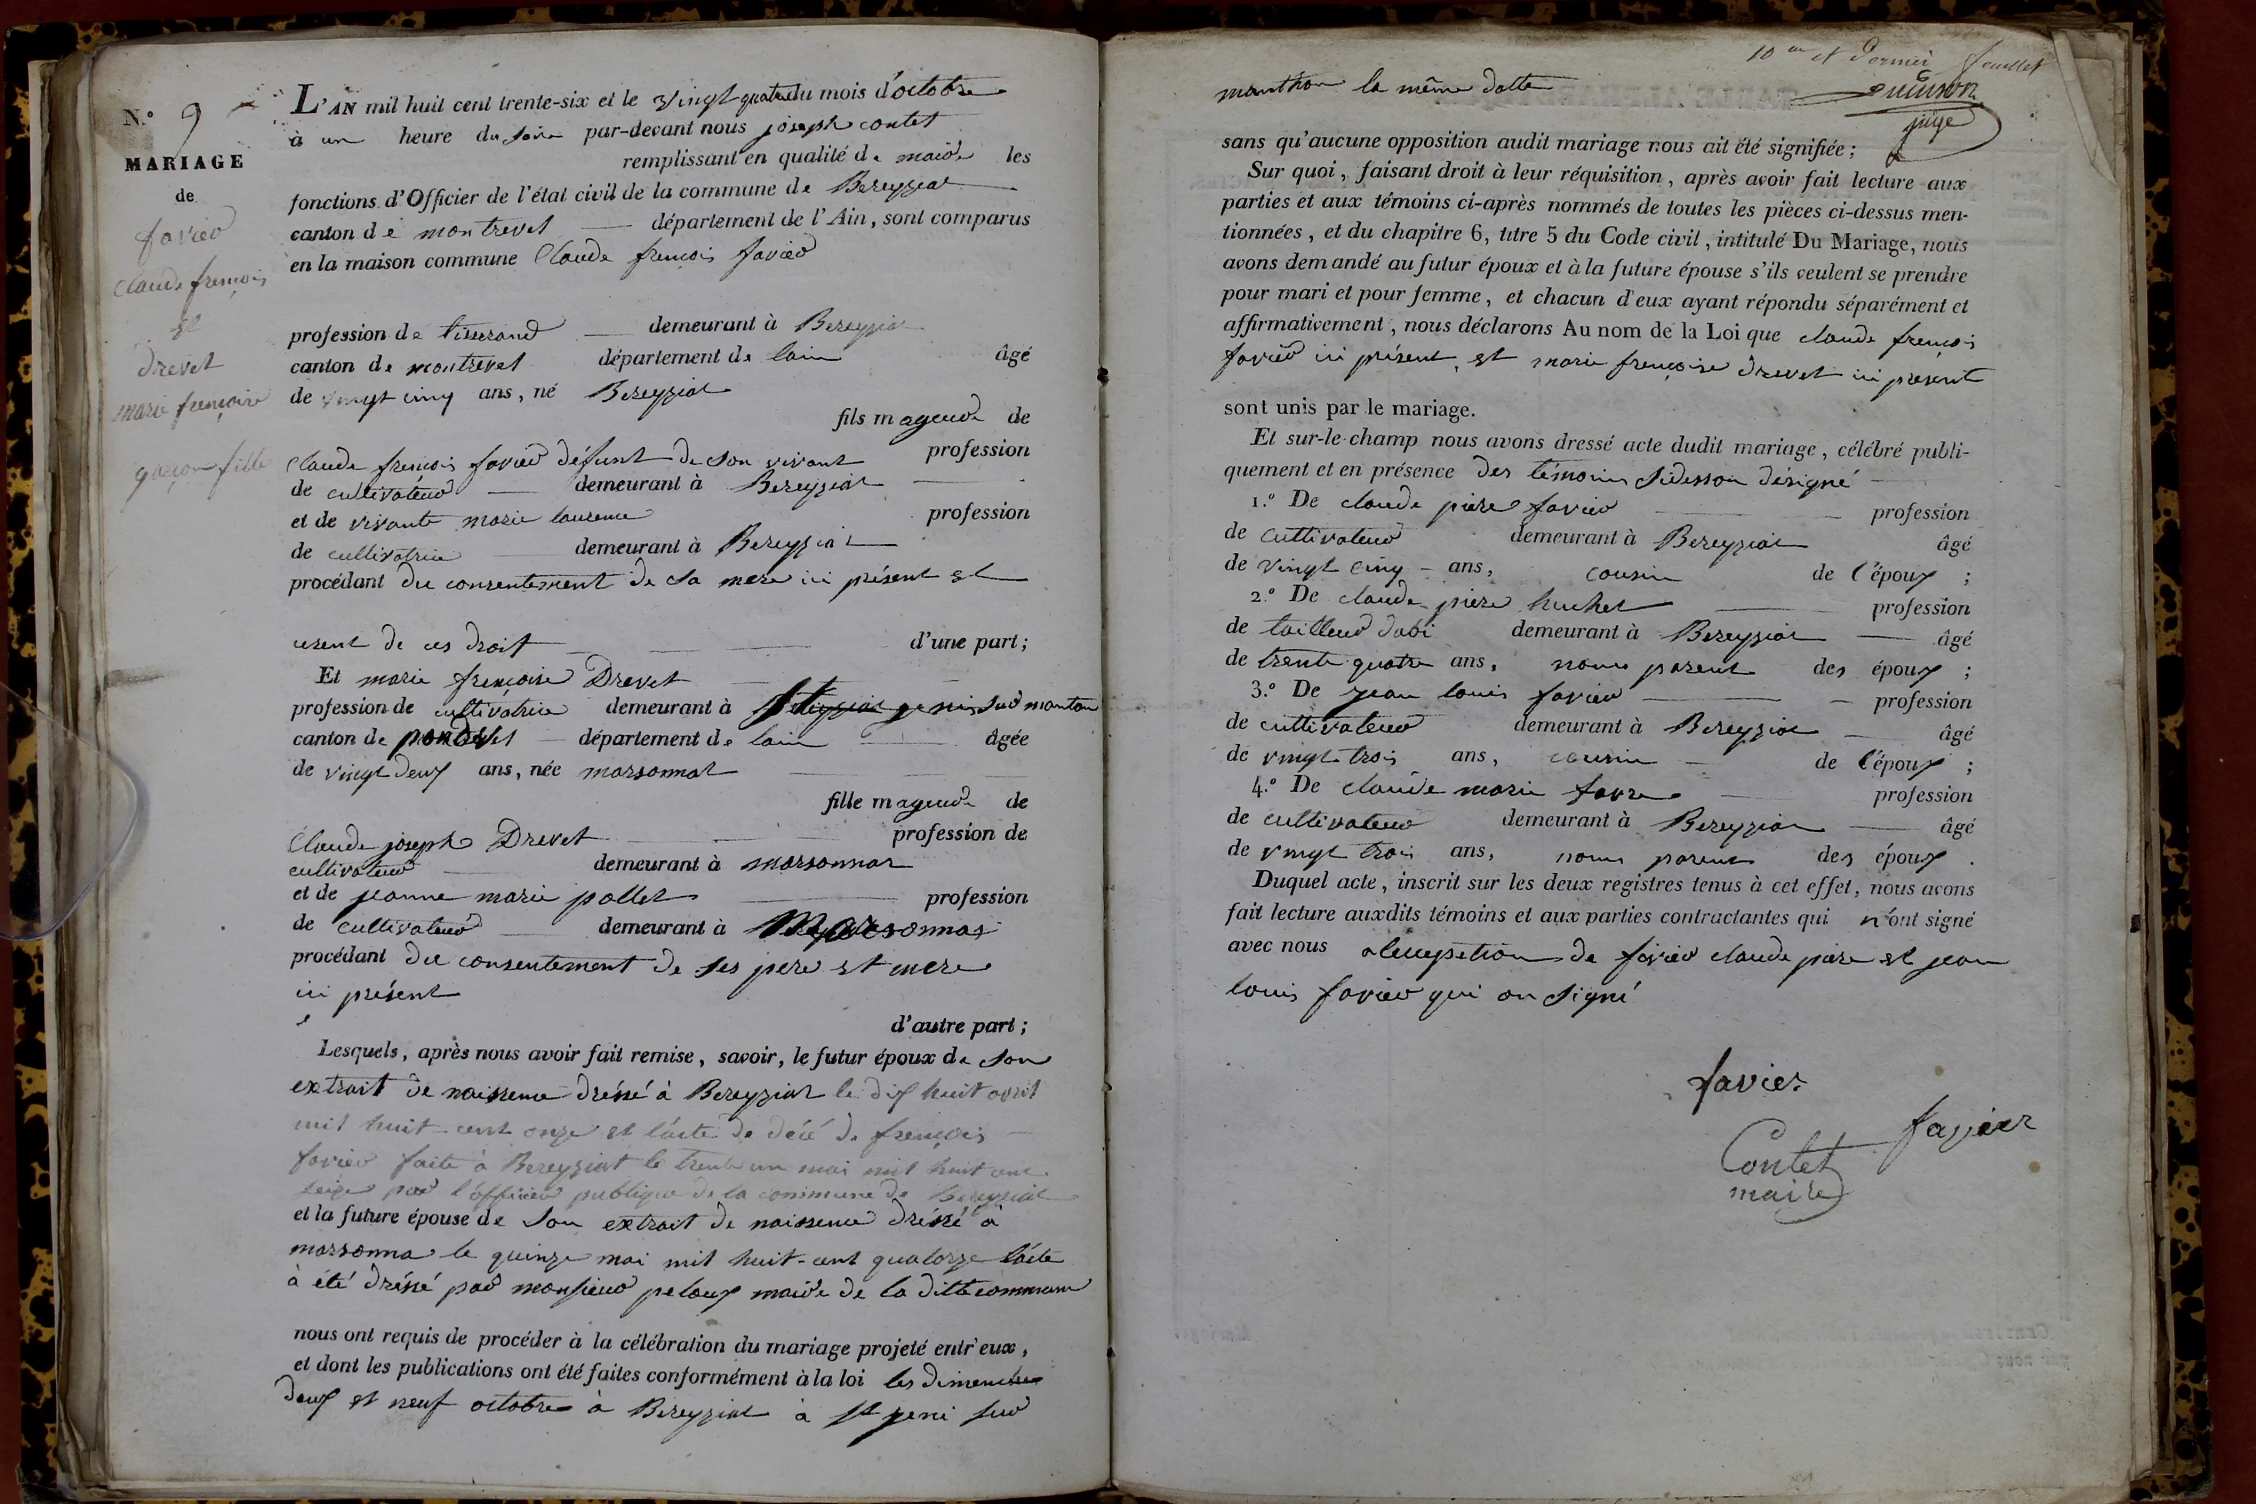 N.° 9
MARIAGE
de
favier
claude françois
et
drevet
marie françoise
garçon fille
L'AN mil huit cent trente-six et le vingt quatre du mois d'octobre
à un heure du soire par-devant nous joseph contet
remplissant en qualité de maire les
fonctions d'Officier de l'état civil de la commune de Bereyziat
canton de montrevel département de l'Ain, sont comparus
en la maison commune Claude françois favier
profession de tisserand demeurant à Bereyziat
canton de montrevel département de lain âgé
de vingt cinq ans, né Bereyziat
fils mageude de
Claude françois favier défunt de son vivant profession
de cultivateur demeurant à Bereyziat
et de vivante marie laurence profession
de cultivatrice demeurant à Bereyziat
procédant du consentement de sa mere ici présent et
usent de ces droit d'une part;
Et marie françoise Drevet
profession de cultivatrice demeurant à St genis sur manton
canton de département de lain âgée
de vingt deux ans, née marsonnat
fille mageude de
Claude joseph Drevet profession de
cultivateur demeurant à marsonnas
et de jeanne marie pallet profession
de cultivateur demeurant à Marsonnas
procédant du consentement de ses pere et mere
ici présent
d'autre part;
Lesquels, après nous avoir fait remise, savoir, le futur époux de son
extrait de naissence dréssé à Bereyziat le dix huit avril
mil huit cent onze et l'acte de décé de françois
favier faite à Bereyziat le trente un mai mil huit cent
seize par l'officier publique de la commune de Bereyziat
et la future épouse de son extrait de naissence dréssé à
marsonna le quinze mai mil huit-cent quatorze l'acte
à été dréssé par monsieur peloux maire de la ditte commune
nous ont requis de procéder à la célébration du mariage projeté entr'eux,
et dont les publications ont été faites conformément à la loi les dimenches
deux et neuf octobre à Bereyziat à st geni sur
10me et dernier feuillet
juge
manthon la même datte
sans qu'aucune opposition audit mariage nous ait été signifiée;
Sur quoi, faisant droit à leur réquisition, après avoir fait lecture aux
parties et aux témoins ci-après nommés de toutes les pièces ci-dessus men-
tionnées, et du chapitre 6, titre 5 du Code civil, intitulé Du Mariage, nous
avons demandé au futur époux et à la future épouse s'ils veulent se prendre
pour mari et pour femme, et chacun d'eux ayant répondu séparément et
affirmativement, nous déclarons Au nom de la Loi que claude françois
favier ici présent et marie françoise drevet ici présent
sont unis par le mariage.
Et sur-le-champ nous avons dressé acte dudit mariage, célébré publi-
quement et en présence des témoins sidesson désigné
1.° De claude piere favier profession
de cultivateur demeurant à Bereyziat âgé
de vingt cinq ans, cousin de l'époux ;
2.° De claude piere huchet profession
de tailleur dabi demeurant à Bereyziat âgé
de trente quatre ans, nom parent des époux ;
3.° De jean louis favier profession
de cultivateur demeurant à Bereyziat âgé
de vingt-trois ans, cousin de l'époux ;
4.° De claude marie favre profession
de cultivateur demeurant à Bereyziat âgé
de vingt trois ans, nom parent des époux .
Duquel acte, inscrit sur les deux registres tenus à cet effet, nous avons
fait lecture auxdits témoins et aux parties contractantes qui n'ont signé
avec nous alexepetion de favier claude piere et jean
louis favier qui on signé
favier
favier
Contet
maire